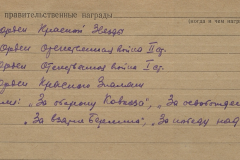 правительственные награды
(когда и чем наг
Орден Красной Звезды
Орден Отечественная война II ст.
Орден Отечественная война I ст.
Орден Красного Знамени
"За оборону Кавказа", "За освобожден
"За взятие Берлина", "За победу над